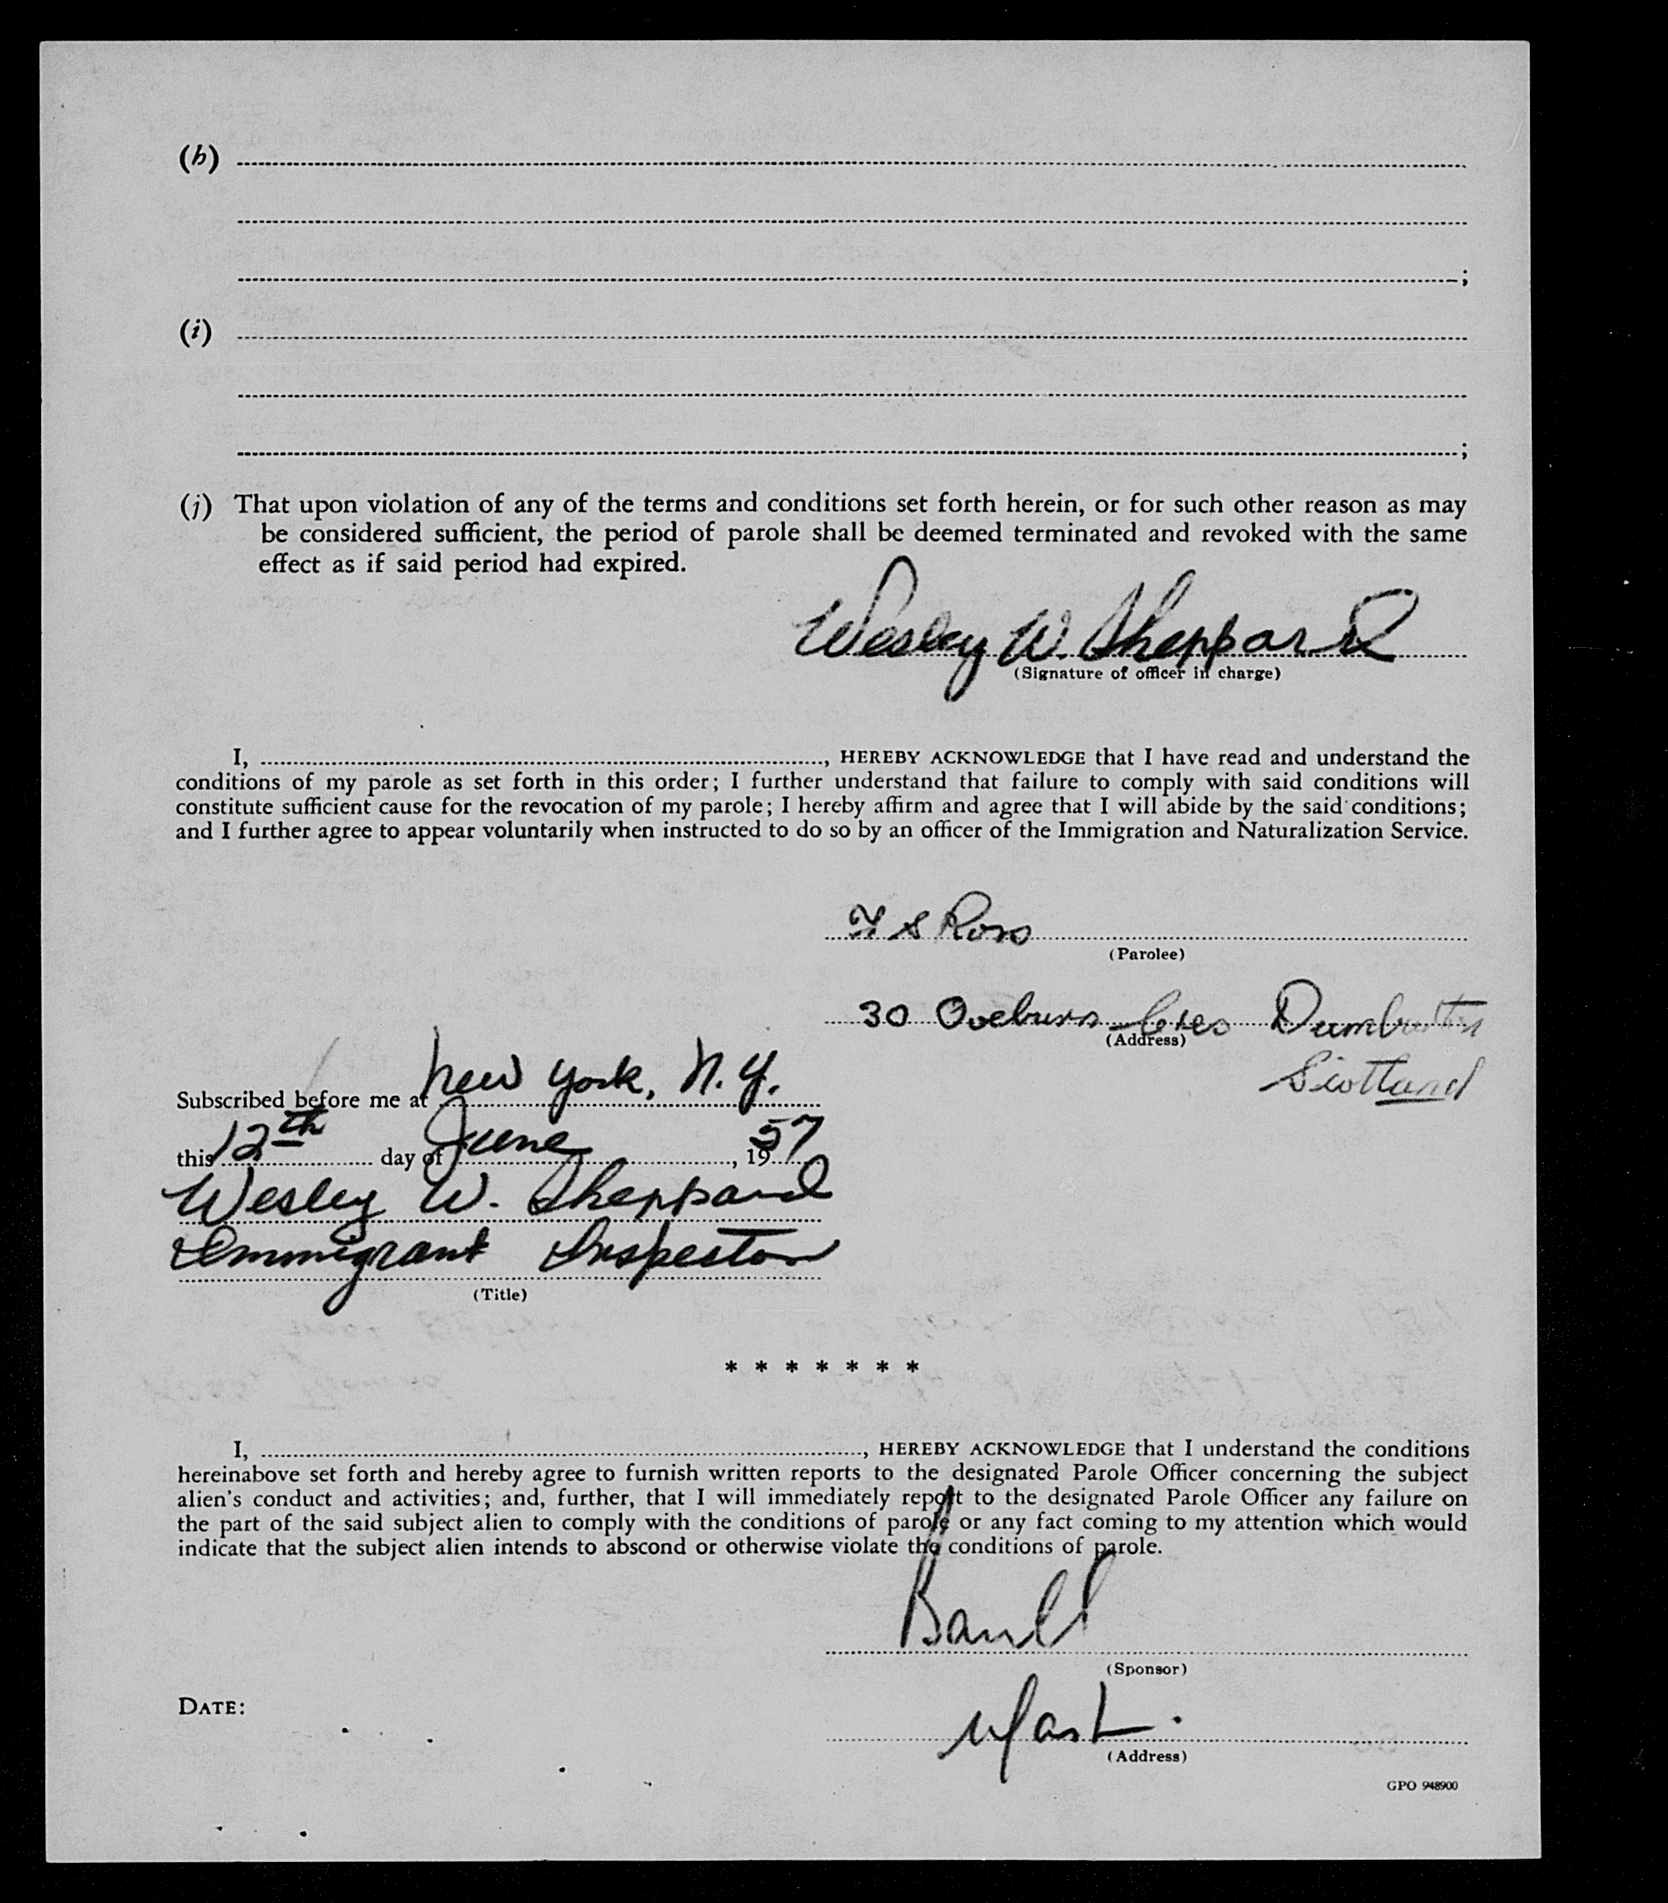 (h)
;
(i)
;
(j) That upon violation of any of the terms and conditions set forth herein, or for such other reason as may
be considered sufficient, the period of parole shall be deemed terminated and revoked with the same
effect as if said period had expired.
Wesley W. Sheppard
(Signature of officer in charge)
I, , HEREBY ACKNOWLEDGE that I have read and understand the
conditions of my parole as set forth in this order; I further understand that failure to comply with said conditions will
constitute sufficient cause for the revocation of my parole; I hereby affirm and agree that I will abide by the said conditions;
and I further agree to appear voluntarily when instructed to do so by an officer of the Immigration and Naturalization Service.
S Ross
(Parolee)
30 Cres Dumbarton
(Address)
Scotland
Subscribed before me at New York, N.Y.
this 12th day of June, 1957
Wesley W. Sheppard
Immigrant Inspector
(Title)
* * * * * * *
I, , HEREBY ACKNOWLEDGE that I understand the conditions
hereinabove set forth and hereby agree to furnish written reports to the designated Parole Officer concerning the subject
alien's conduct and activities; and, further, that I will immediately report to the designated Parole Officer any failure on
the part of the said subject alien to comply with the conditions of parole or any fact coming to my attention which would
indicate that the subject alien intends to abscond or otherwise violate the conditions of parole.
(Sponsor)
DATE:
(Address)
GPO 948900